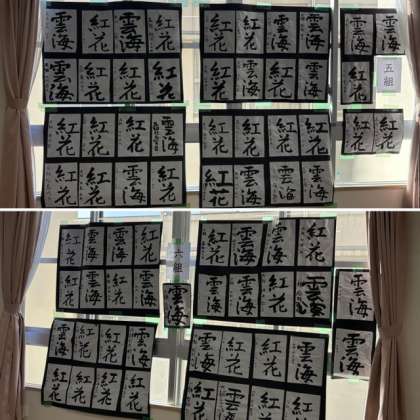 雲海
紅花
雲海
紅花
雲海
紅花
紅花
紅花
紅花
紅花
雲海
紅花
紅花
雲海
紅花
雲海
雲海
雲海
紅花
五組
紅花
紅花
紅花
紅花
紅花
雲海
紅花
紅花
雲海
紅花
紅花
紅花
紅花
紅花
紅花
雲海
雲海
雲海
紅花
雲海
雲海
紅花
雲海
雲海
紅花
雲海
六組
雲海
紅花
雲海
雲海
紅花
雲海
紅花
紅花
雲海
雲海
雲海
雲海
紅花
紅花
雲海
紅花
紅花
紅花
紅花
雲海
紅花
紅花
雲海
紅花
紅花
紅花